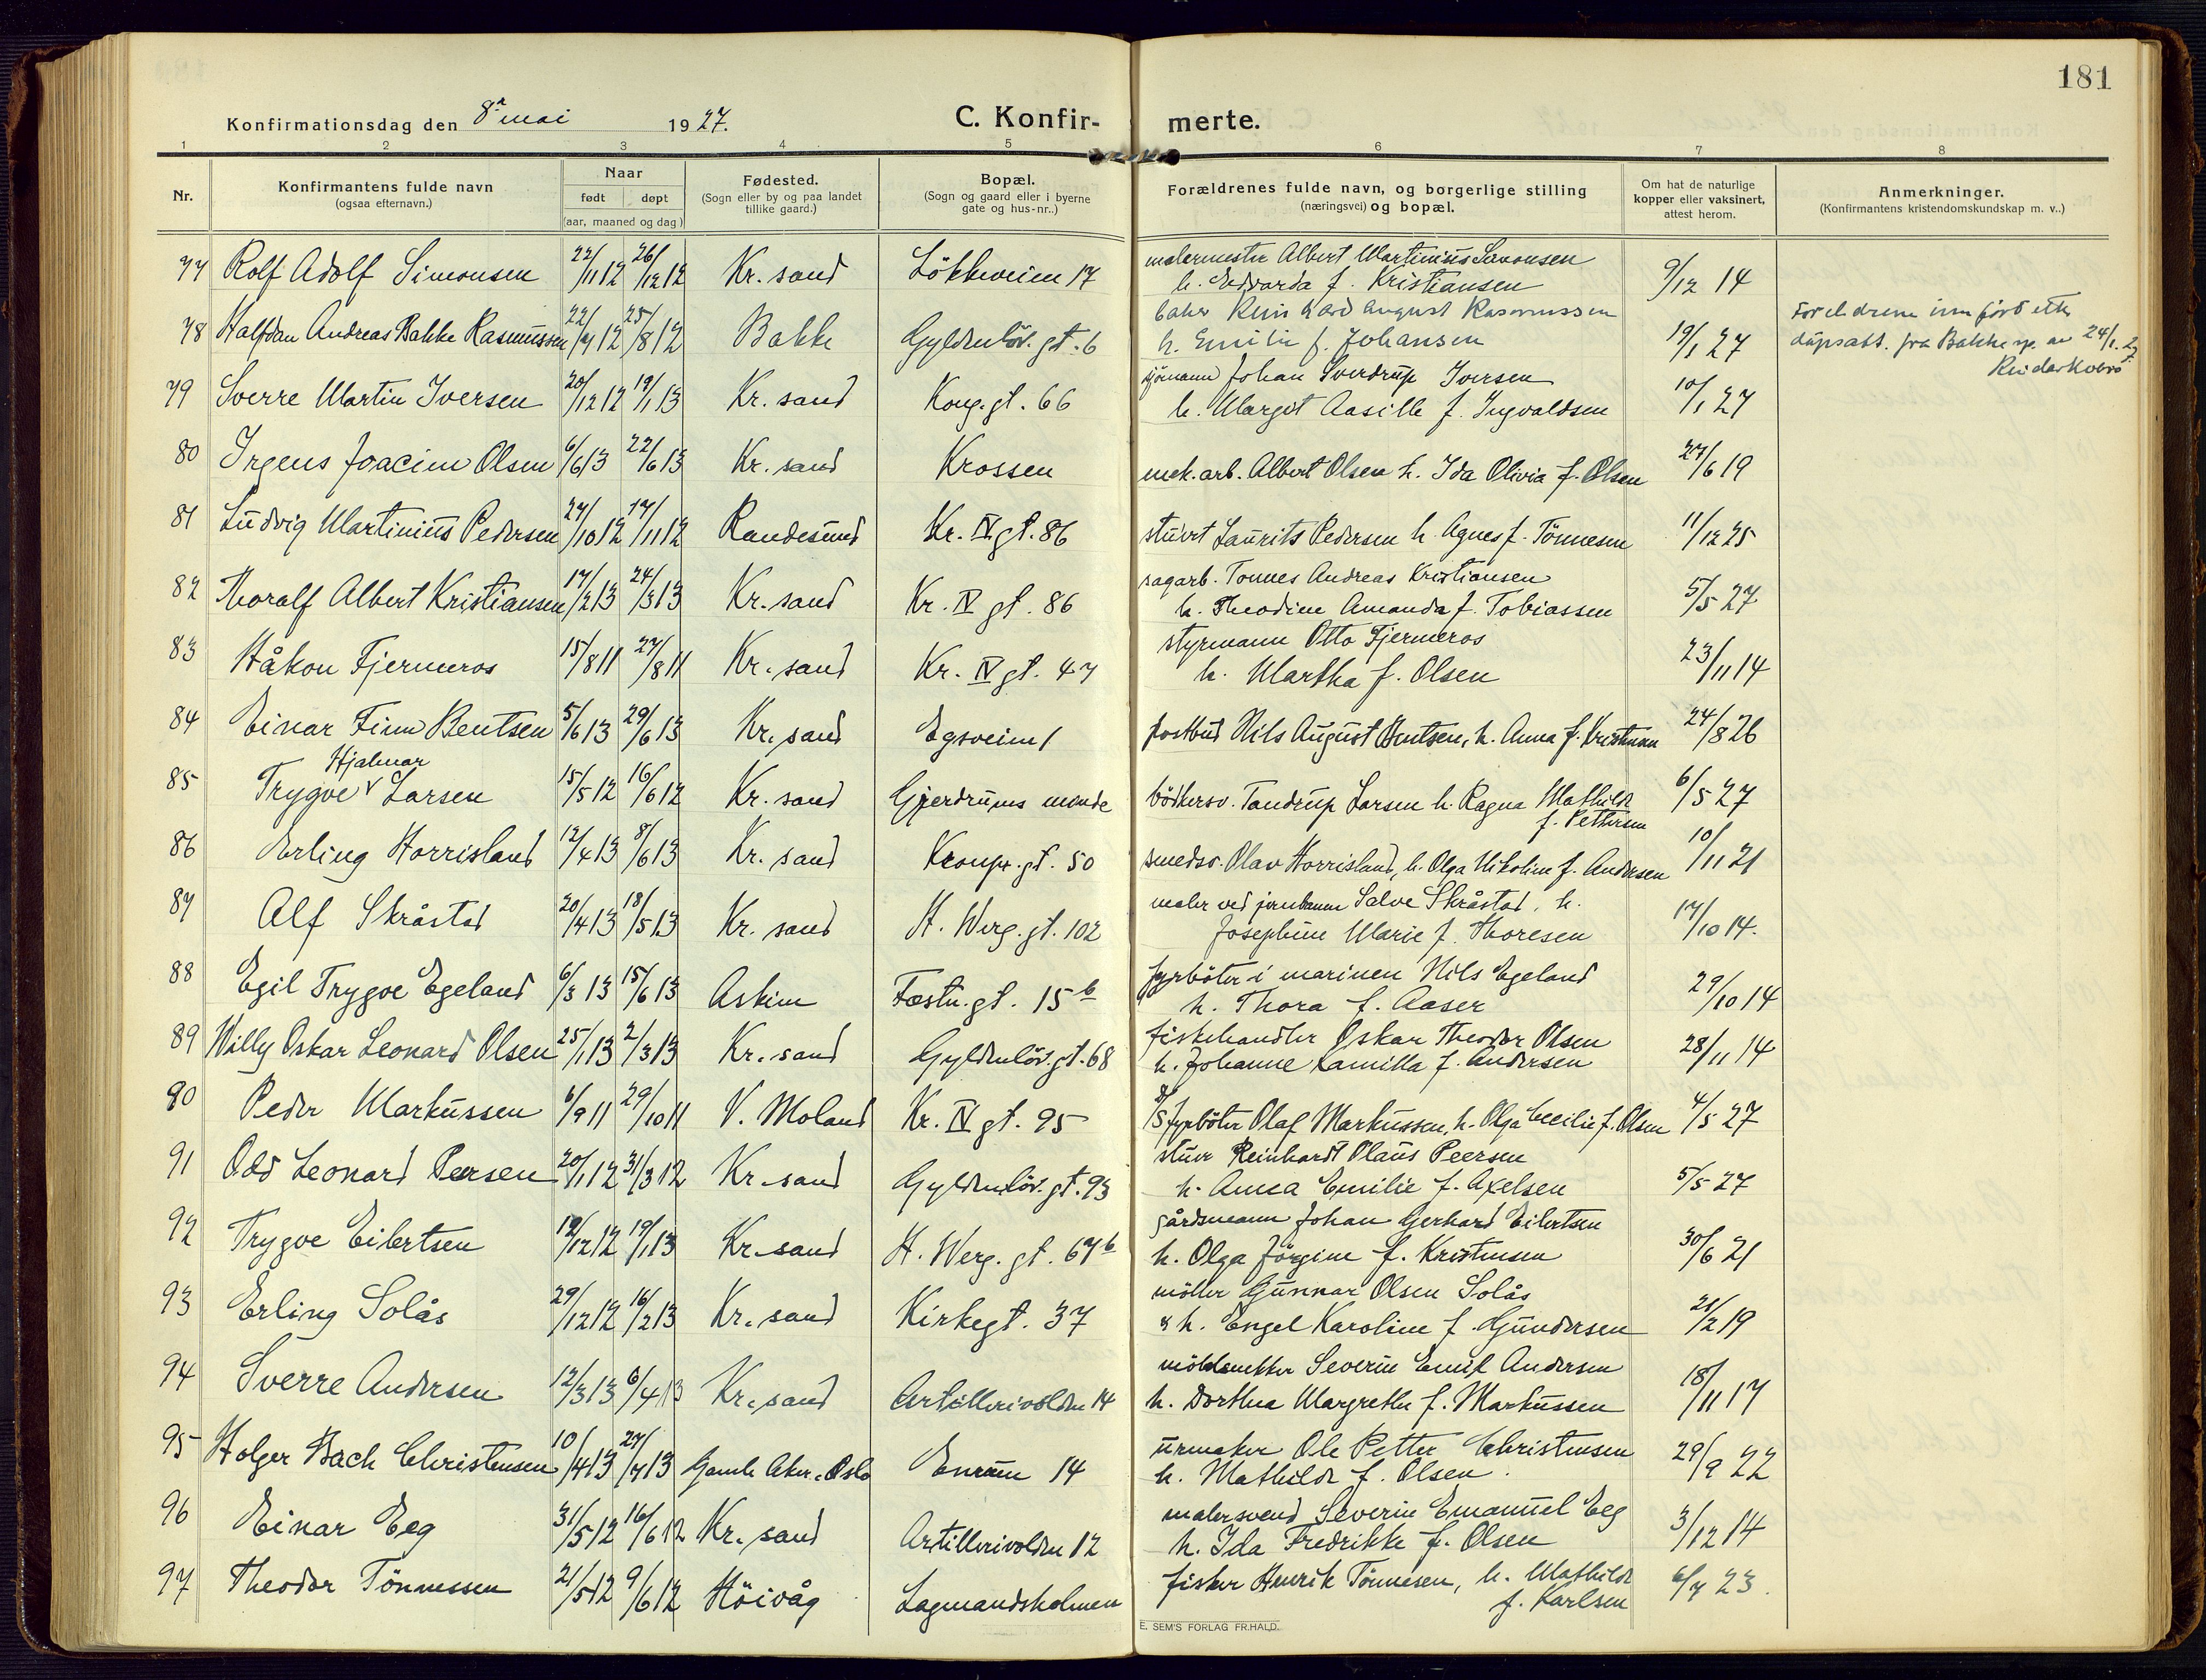 181
Konfirmationsdag den 8de mai 1927.
C. Konfir- merte.
1 2 3 4 5 6 7 8
Nr. Konfirmantens fulde navn Naar Fødested. Bopæl. Forældrenes fulde navn, og borgerlige stilling Om hat de naturlige Anmerkninger.
(ogsaa efternavn.) født døpt (Sogn eller by og paa landet (Sogn og gaard eller i byerne (næringsvei) og bopæl. kopper eller vaksinert, (Konfirmantens kristendomskundskap m. v..)
(aar, maaned og dag) tillike gaard.) gate og hus-nr..) attest herom.
malermester Albert Martinius Simonsen
77 Rolf Adolf Simonsen 22/11 12 26/12 12 Kr. sand Lökkeveien 17 h. Edvarda f. Kristiansen 9/12 14
baker Kard August Rasmussen Foreldrene innført etter
78 Halfdan Andreas Bakke Rasmussen 22/7 12 25/8 12 Bakke Gyldenløv. gt. 6 h. Emilie f. Johansen 19/1 27 dåpsatt. fra Bakke sp. av 24/1. 27
Reidar Kvere
sjömann Johan Sverdrup Iversen
79 Sverre Martin Iversen 20/12 12 19/1 13 Kr. sand Kong. gt. 66 h. Margit Aasille f. Ingvaldsen 10/1 27
80 Irgens Joacim Olsen 6/6 13 22/6 13 Kr. sand Krossen mek. arb. Albert Olsen h. Ida Olivia f. Olsen 27/6 19
81 Ludvig Martinius Pedersen 27/10 12 17/11 12 Randesund Kr. IV gt. 86 stuert Laurits Pedersen h. Agnes f. Tönnesen 11/12 25
sagarb. Tonnes Andreas Kristiansen
82 Thoralf Albert Kristiansen 17/2 13 24/3 13 Kr. sand Kr. IV gt. 86 h. Theodine Amanda f. Tobiassen 5/5 27
styrmann Otto Fjermeros
83 Håkon Fjermeros 15/8 11 27/8 11 Kr. sand Kr. IV gt. 47 h. Martha f. Olsen 23/11 14
84 Einar Finn Bentsen 5/6 13 29/6 13 Kr. sand Egsveien 1 postbud Nils August Bentsen, h. Anna f. Kristensen 24/8 26
Hjalmar
85 Trygve v Larsen 15/5 12 16/6 12 Kr. sand Gjerdrups minde bödkersv. Tandrup Larsen h. Ragna Mathilde 6/5 27
f. Pettersen
86 Erling Horrisland 12/4 13 8/6 13 Kr. sand Kronpr. gt. 50 smedsv. Olav Horrisland, h. Olga Nikoline f. Andersen 10/11 21
maler ved jernbanen Salve Skråstad, h.
87 Alf Skråstad 20/4 13 18/5 13 Kr. sand H. Werg. gt. 102 Josephine Marie f. Thoresen 17/10 14.
fyrböter i marinen Nils Egeland
88 Egil Trygve Egeland 6/3 13 15/6 13 Askim Fæstn. gt. 15 b h. Thora f. Aaser 29/10 14
fiskehandler Oskar Theodor Olsen
89 Willy Oskar Leonard Olsen 25/1 13 2/3 13 Kr. sand Gyldenlöv. gt. 68 h. Johanne Kamilla f. Andersen 28/11 14
90 Peder Markussen 6/9 11 29/10 11 V. Moland Kr. IV gt. 95 D/S fyrböter Olaf Markussen, h. Olga Cecilie f. Olsen 4/5 27
stuer Reinhardt Olaus Peersen
91 Odd Leonard Peersen 20/1 12 31/3 12 Kr. sand Gyldenlöv. gt. 93 h. Anna Emilie f. Axelsen 5/5 27
gårdsmann Johan Gerhard Eilertsen
92 Trygve Eilertsen 12/12 12 19/1 13 Kr. sand H. Werg. gt. 67 b h. Olga Jörgine f. Kristensen 30/6 21
möller Gunnar Olsen Solås
93 Erling Solås 29/12 12 16/2 13 Kr. sand Kirkegt. 37 & h. Engel Karoline f. Gundersen 21/2 19
möbelsnekker Severin Emil Andersen
94 Sverre Andersen 12/3 13 6/4 13 Kr. sand Artillerivolden 14 h. Dorthea Margrethe f. Markussen 18/11 17
urmaker Ole Petter Christensen
95 Holger Bach Christensen 10/4 13 27/7 13 Gamle Aker. Oslo Enrum 14 h. Mathilde f. Olsen. 29/9 22
malersvend Severin Emanuel Eeg
96 Einar Eeg 31/5 12 16/6 12 Kr. sand Artillerivolden 12 h. Ida Fredrikke f. Olsen 3/12 14
97 Theodor Tönnessen 21/5 12 9/6 12 Höivåg Lagmandsholmen fisker Henrik Tönnesen, h. Mathilde 6/7 23.
f. Karlsen
E. SEM'S FORLAG FR.HALD.